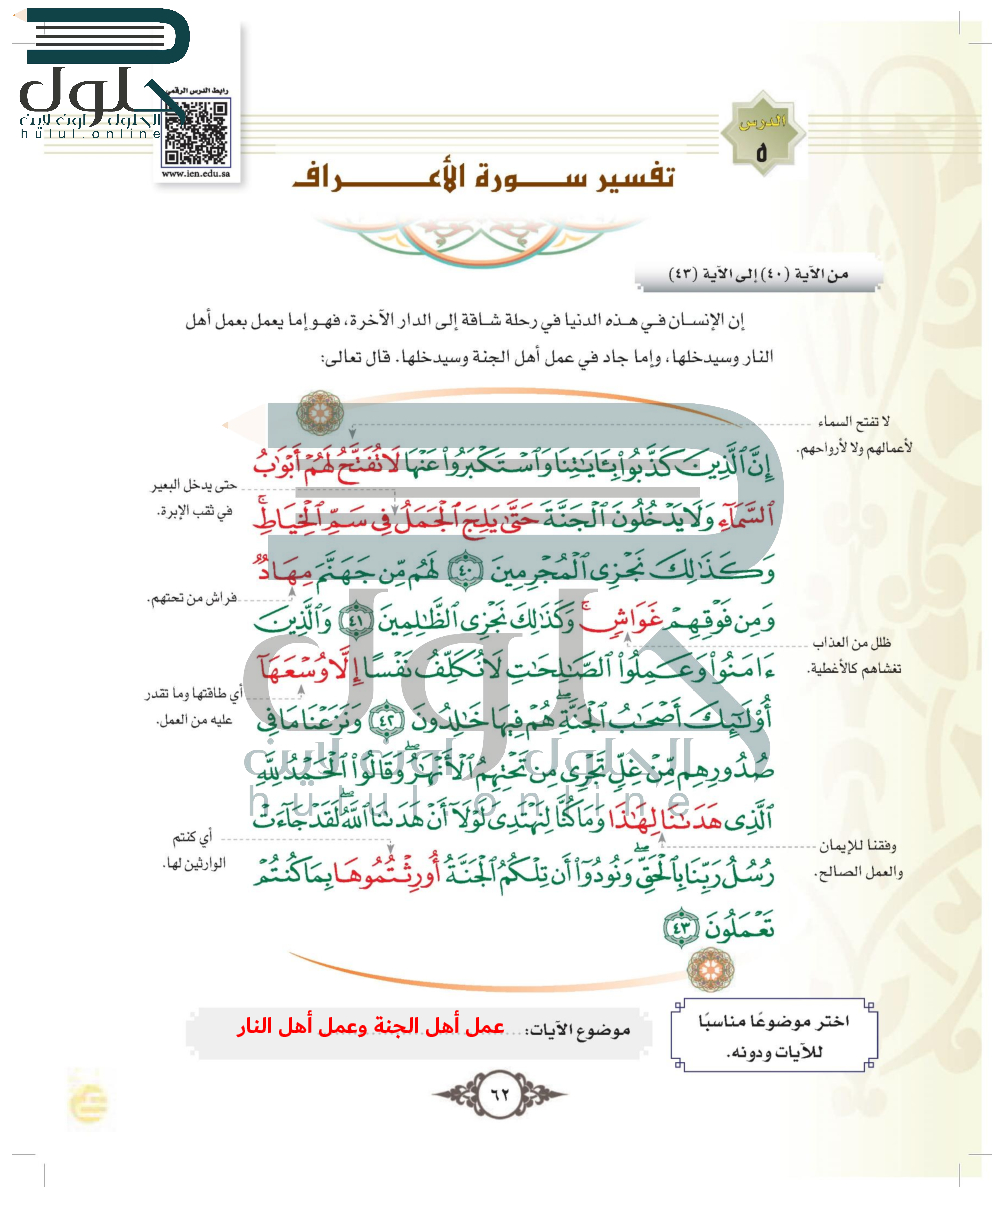 حلول
الحلول اون لاين
hulul.online
رابط الدرس الرقمي
www.ien.edu.sa
الدرس
٥
تفسير ســـورة الأعـــــراف
من الآية (٤٠) إلى الآية (٤٣)
إن الإنسـان فـي هـذه الدنيا في رحلة شـاقة إلى الدار الآخرة، فهـو إما يعمل بعمل أهل
النار وسيدخلها، وإما جاد في عمل أهل الجنة وسيدخلها. قال تعالى:
لا تفتح السماء
لأعمالهم ولا لأرواحهم.
إِنَّ ٱلَّذِينَ كَذَّبُوا۟ بِـَٔايَـٰتِنَا وَٱسْتَكْبَرُوا۟ عَنْهَا لَا تُفَتَّحُ لَهُمْ أَبْوَٰبُ
حتى يدخل البعير
في ثقب الإبرة.
ٱلسَّمَآءِ وَلَا يَدْخُلُونَ ٱلْجَنَّةَ حَتَّىٰ يَلِجَ ٱلْجَمَلُ فِى سَمِّ ٱلْخِيَاطِ ۚ
وَكَذَٰلِكَ نَجْزِى ٱلْمُجْرِمِينَ ٤٠ لَهُم مِّن جَهَنَّمَ مِهَادٌ
فراش من تحتهم.
وَمِن فَوْقِهِمْ غَوَاشٍ ۚ وَكَذَٰلِكَ نَجْزِى ٱلظَّـٰلِمِينَ ٤١ وَٱلَّذِينَ
ظلل من العذاب
تغشاهم كالأغطية.
ءَامَنُوا۟ وَعَمِلُوا۟ ٱلصَّـٰلِحَـٰتِ لَا نُكَلِّفُ نَفْسًا إِلَّا وُسْعَهَآ
أي طاقتها وما تقدر
عليه من العمل.
أُو۟لَـٰٓئِكَ أَصْحَـٰبُ ٱلْجَنَّةِ ۖ هُمْ فِيهَا خَـٰلِدُونَ ٤٢ وَنَزَعْنَا مَا فِى
صُدُورِهِم مِّنْ غِلٍّ تَجْرِى مِن تَحْتِهِمُ ٱلْأَنْهَـٰرُ ۖ وَقَالُوا۟ ٱلْحَمْدُ لِلَّهِ
ٱلَّذِى هَدَىٰنَا لِهَـٰذَا وَمَا كُنَّا لِنَهْتَدِىَ لَوْلَآ أَنْ هَدَىٰنَا ٱللَّهُ ۖ لَقَدْ جَآءَتْ
أي كنتم
الوارثين لها.
وفقنا للإيمان
والعمل الصالح.
رُسُلُ رَبِّنَا بِٱلْحَقِّ ۖ وَنُودُوٓا۟ أَن تِلْكُمُ ٱلْجَنَّةُ أُورِثْتُمُوهَا بِمَا كُنتُمْ
تَعْمَلُونَ ٤٣
حلول
الحلول اون لاين
hulul.online
اختر موضوعًا مناسبًا
للآيات ودونه.
موضوع الآيات: عمل أهل الجنة وعمل أهل النار
٦٢